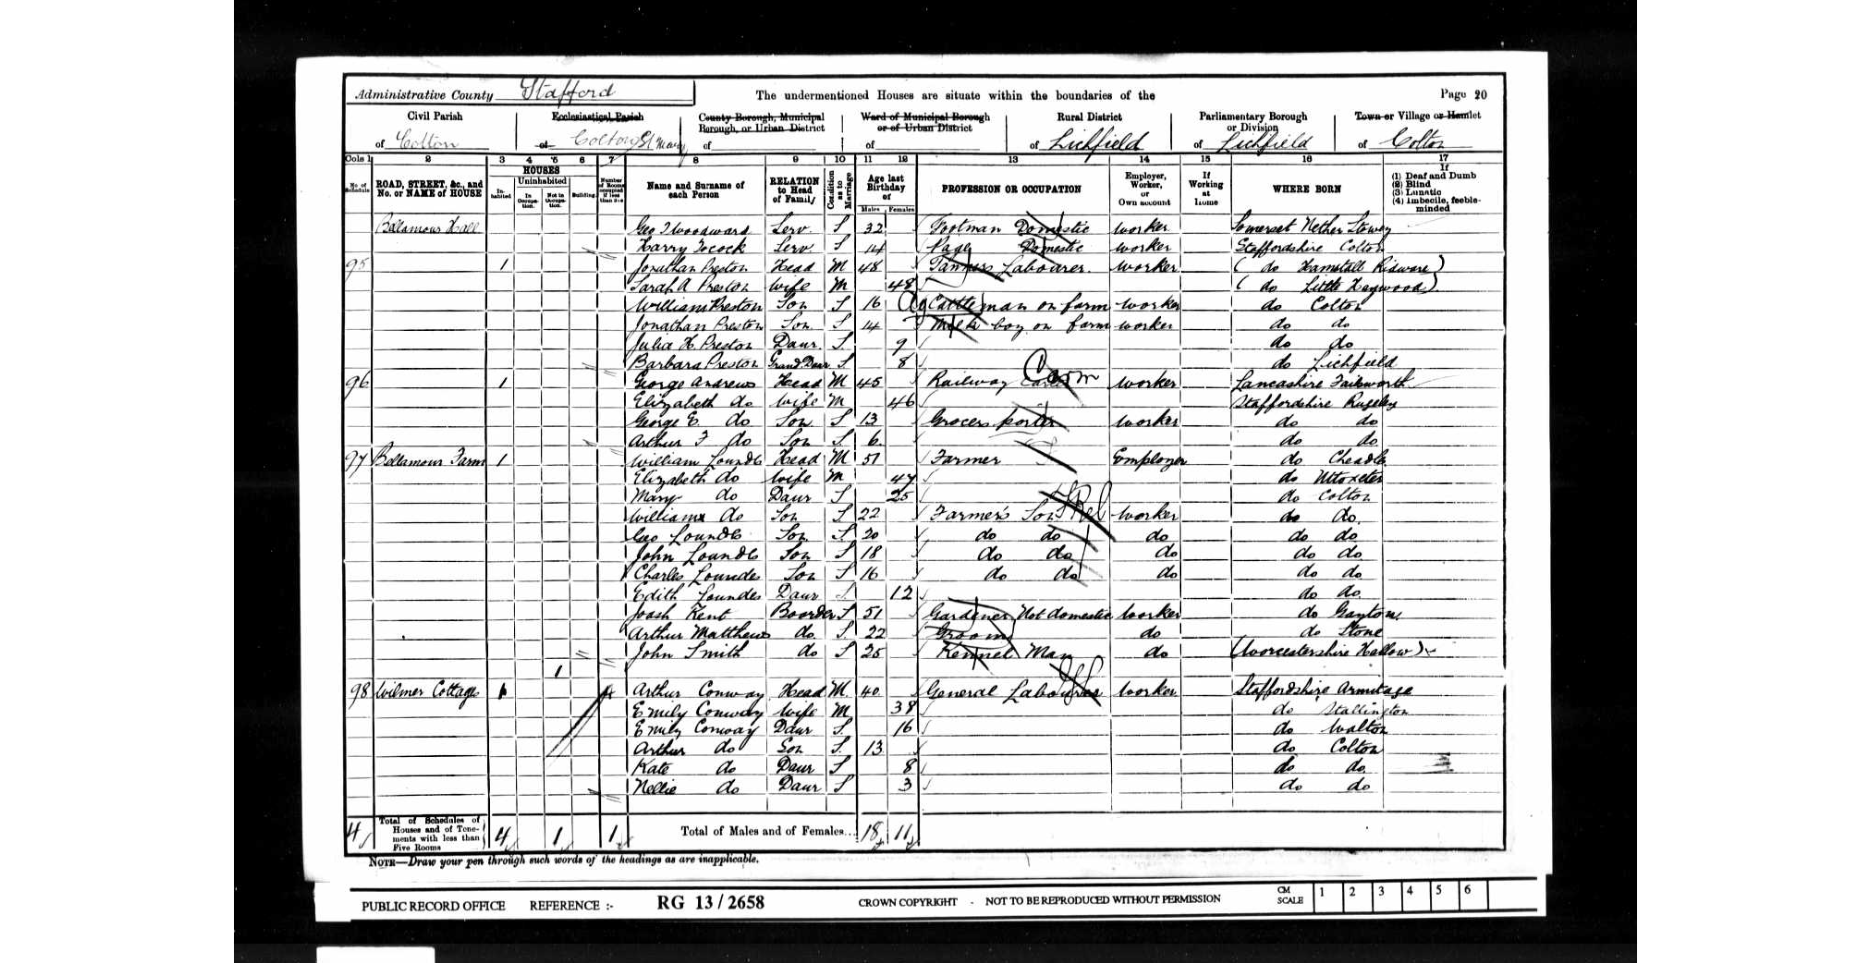 Administrative County Stafford
The undermentioned Houses are situate within the boundaries of the
Page 20
Civil Parish of Colton
Ecclesiastical Parish of Colton St Mary
County Borough, Municipal Borough, or Urban District of
Ward of Municipal Borough or of Urban District of
Rural District of Lichfield
Parliamentary Borough or Division of Lichfield
Town or Village or Hamlet of Colton
Cols 1 2 3 4 5 6 7 8 9 10 11 12 13 14 15 16 17
No. of Schedule
ROAD, STREET, &c., and No. or NAME of HOUSE
HOUSES
Inhabited
Uninhabited
In Occupation.
Not in Occupation.
Building
Number of Rooms occupied if less than five
Name and Surname of each Person
RELATION to Head of Family
Condition as to Marriage
Age last Birthday of
Males Females
PROFESSION OR OCCUPATION
Employer, Worker, or Own account
If Working at Home
WHERE BORN
If
(1) Deaf and Dumb
(2) Blind
(3) Lunatic
(4) Imbecile, feeble-minded
Bellamour Hall Geo Woodward Serv. S 32 Footman Domestic worker Somerset Nether Stowey
Harry Pocock Serv S 14 Page Domestic worker Staffordshire Colton
95 1 Jonathan Preston Head M 48 Tanners Labourer. worker ( do Hamstall Ridware)
Sarah A Preston Wife M 48 ( do Little Haywood)
William Preston Son S 16 Cattle man on farm worker do Colton
Jonathan Preston Son. S 14 Milk boy on farm worker do do
Julia H Preston Daur. S. 9 do do
Barbara Preston Grand Daur S. 8 do Lichfield
96 1 George Andrews Head M 45 Railway worker Lancashire Failsworth
Elizabeth do Wife M 46 Staffordshire Rugeley
George E. do Son S 13 Grocers porter worker do do
Arthur F do Son S 6 do do
97 Bellamour Farm 1 William Lounds Head M 51 Farmer Employer do Cheadle
Elizabeth do Wife M 47 do Uttoxeter
Mary do Daur S 25 do Colton
William do Son S 22 Farmer's Son Rel worker do do.
Geo Lounds Son S 20 do do do do do
John Lounds Son S 18 do do do do do
Charles Loundes Son S 16 do do do do do
Edith Loundes Daur S. 12 do do.
Joash Kent Boarder S 51 Gardener Not domestic Worker do Gayton
Arthur Matthews do. S. 22 Groom do do Stone
John Smith do S 25 Kennel Man do (Worcestershire Hallow)
1
98 Wilmer Cottage 1 4 Arthur Conway Head M. 40 General Labourer worker Staffordshire Armitage
Emily Conway Wife M 38 do Stallington
Emily Conway Daur S. 16 do Walton
Arthur do Son S. 13 do Colton
Kate do Daur S 8 do do.
Nellie do Daur S 3 do do
4 Total of Schedules of Houses and of Tenements with less than Five Rooms 4 1 1 Total of Males and of Females... 18 11
NOTE—Draw your pen through such words of the headings as are inapplicable.
PUBLIC RECORD OFFICE REFERENCE :- RG 13/2658 CROWN COPYRIGHT - NOT TO BE REPRODUCED WITHOUT PERMISSION CM SCALE 1 2 3 4 5 6